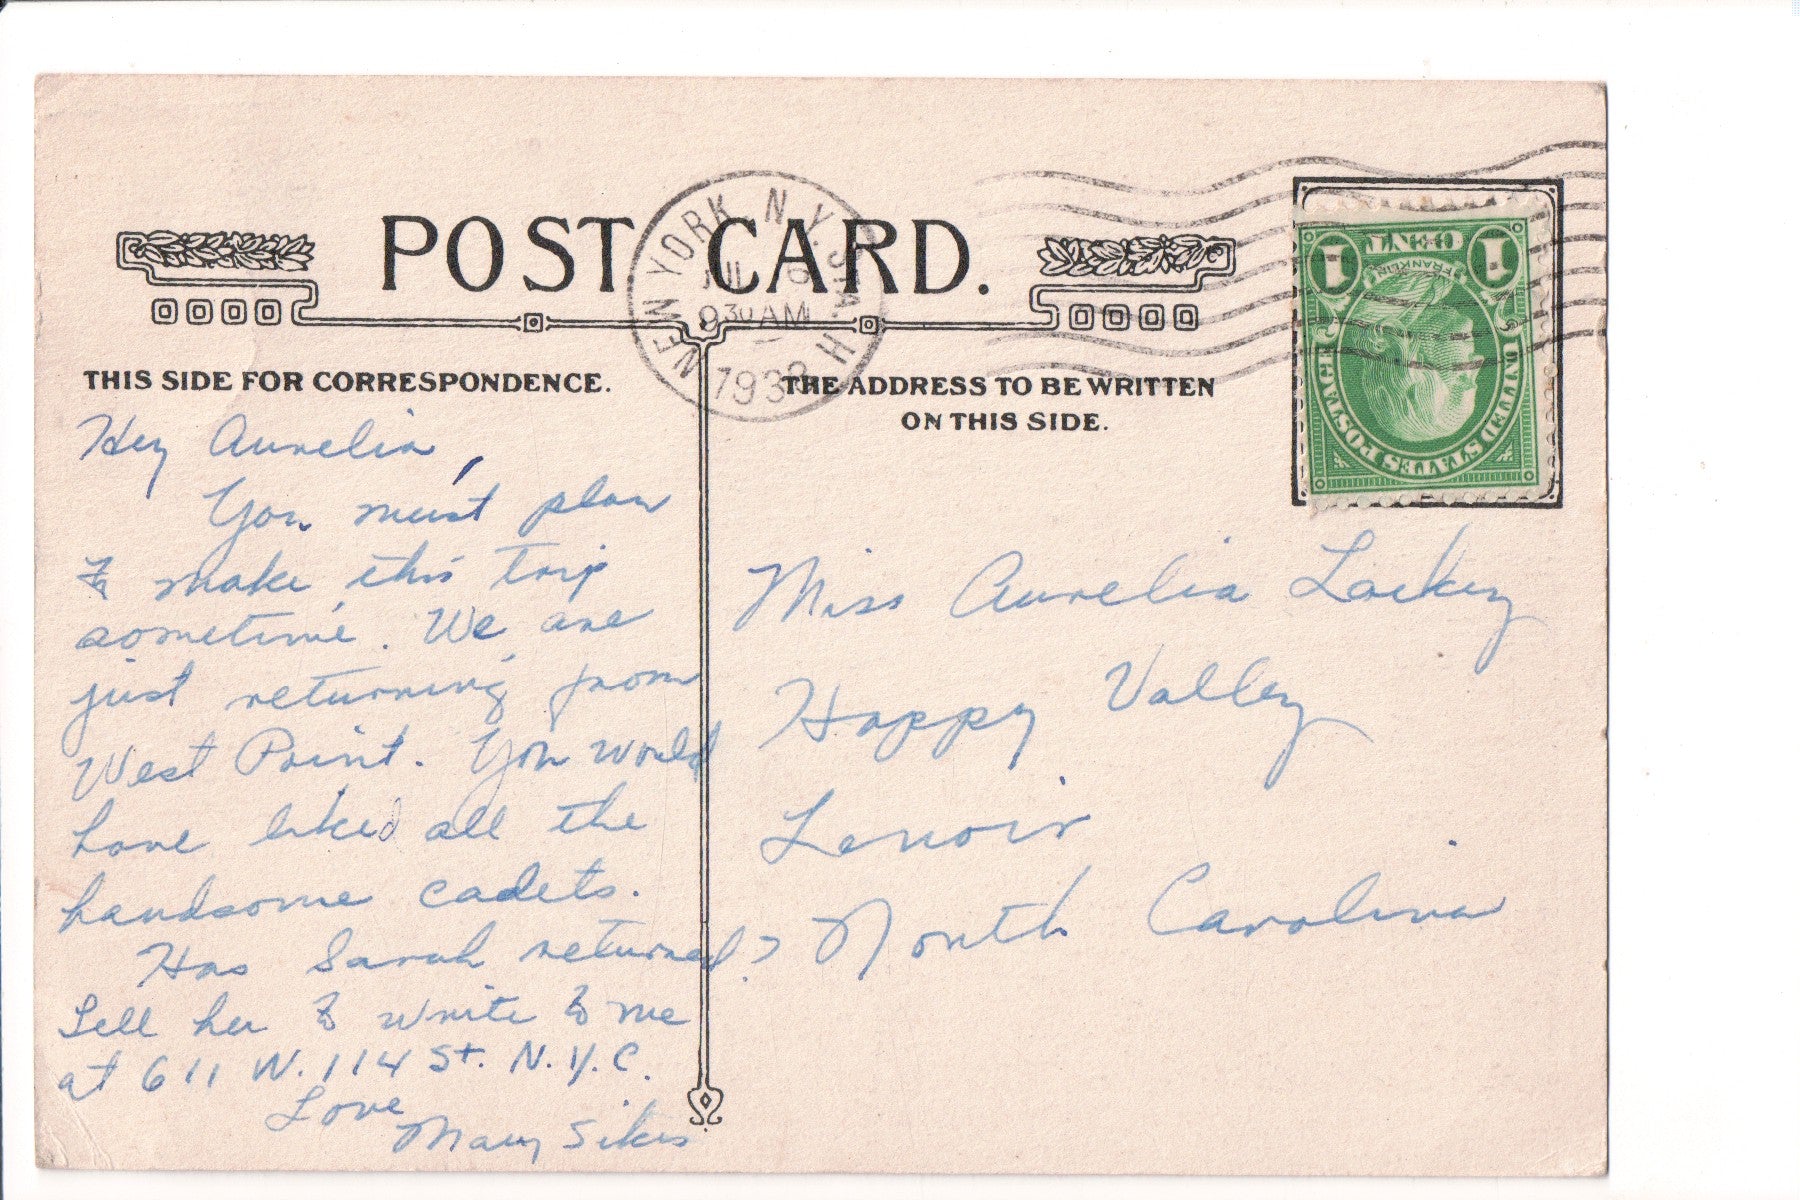 POST CARD.
NEW YORK, N.Y. STA. H
JUL
9 30 AM
193
THIS SIDE FOR CORRESPONDENCE.
THE ADDRESS TO BE WRITTEN
ON THIS SIDE.
1 CENT 1
FRANKLIN
UNITED STATES POSTAGE
Hey Aurelia,
You must plan
to make this trip
sometime. We are
just returning from
West Point. You would
have liked all the
handsome cadets.
Has Sarah returned?
Tell her to write to me
at 611 W. 114 St. N.Y.C.
Love
Mary Sikes
Miss Aurelia Lackey
Happy Valley
Lenoir
North Carolina